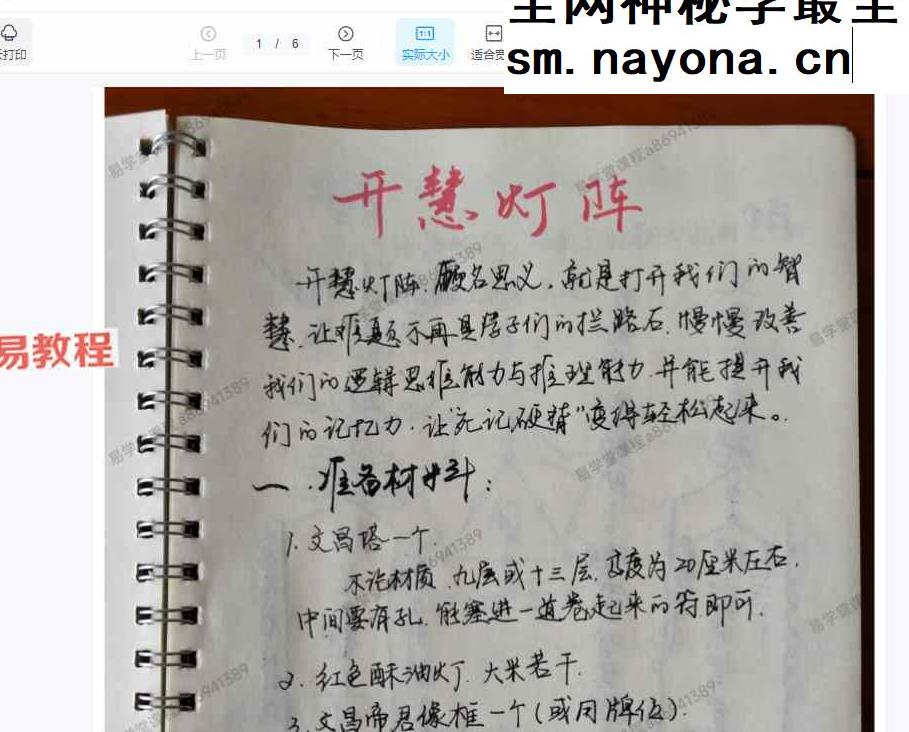 全网神秘学最全
sm.nayona.cn
打印
上一页
1 / 6
下一页
实际大小
适合
易教程
开慧灯阵
开慧灯阵,顾名思义,就是打开我们的智
慧,让难题不再是学子们的拦路石,慢慢改善
我们的逻辑思维能力与推理能力,并能提升我
们的记忆力,让"死记硬背"变得轻松起来。
一.准备材料:
1.文昌塔一个.
不论材质,九层或十三层,高度为20厘米左右,
中间要有孔,能塞进一道卷起来的符即可.
2.红色酥油灯,大米若干.
3.文昌帝君像框一个(或用牌位).
易学堂课程a86941389